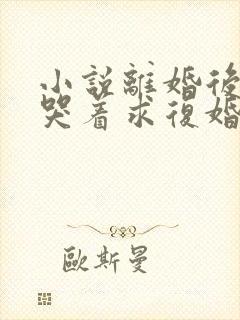 小説離婚後
哭着求復婚
歐斯曼